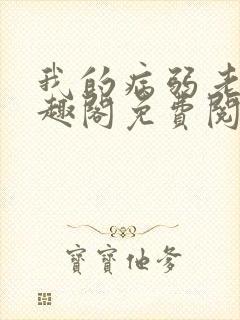 我的病弱老
趣阁免費閱
寶寶他爹